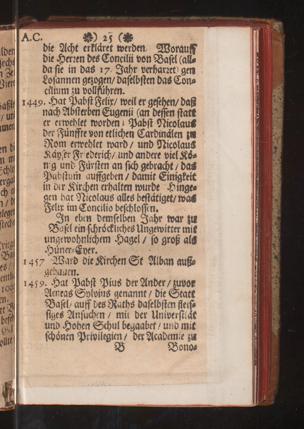 A.C. ❋) 25 (❋
die Acht erkläret werden. Worauff
die Herren des Concilii von Basel (all-
da sie in das 17. Jahr verharzet) gen
Losannen gezogen/ daselbsten das Con-
cilium zu vollführen.
1449. Hat Pabst Felix/ weil er gesehen/ daß
nach Absterben Eugenii (an dessen statt
er erwehlet worden) Pabst Nicolaus
der Fünffte von etlichen Cardinälen zu
Rom erwehlet ward/ und Nicolaus
Käyser Friederich/ und andere viel Kö-
nig und Fürsten an sich gebracht/ das
Pabstum auffgeben/ damit Einigkeit
in der Kirchen erhalten wurde. Hinge-
gen hat Nicolaus alles bestätiget/ was
Felix im Concilio beschlossen.
In eben demselben Jahr war zu
Basel ein schröckliches Ungewitter mit
ungewohnlichem Hagel/ so groß als
Hüner-Eyer.
1457. Ward die Kirchen St. Alban auß-
gebauen.
1459. Hat Pabst Pius der Ander/ zuvor
Aeneas Sylvius genannt/ die Statt
Basel/ auff des Raths daselbsten fleis-
siges Ansuchen/ mit der Universität
und Hohen Schul begaabet/ und mit
schönen Privilegien/ der Academie zu
B Bono-